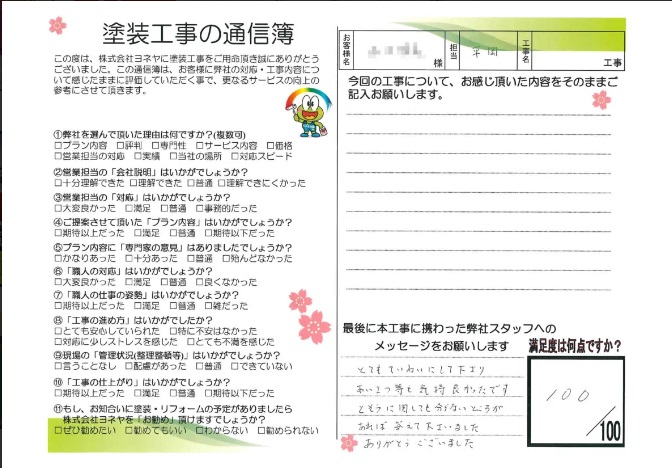 塗装工事の通信簿
この度は、株式会社ヨネヤに塗装工事をご用命頂き誠にありがとう
ございました。この通信簿は、お客様に弊社の対応・工事内容につ
いて感じたままに評価していただく事で、更なるサービスの向上の
参考にさせて頂きます。
①弊社を選んで頂いた理由は何ですか?(複数可)
□プラン内容 □評判 □専門性 □サービス内容 □価格
□営業担当の対応 □実績 □当社の場所 □対応スピード
②営業担当の「会社説明」はいかがでしょうか?
□十分理解できた □理解できた □普通 □理解できにくかった
③営業担当の「対応」はいかがでしょうか?
□大変良かった □満足 □普通 □事務的だった
④ご提案させて頂いた「プラン内容」はいかがでしょうか?
□期待以上だった □満足 □普通 □期待以下だった
⑤プラン内容に「専門家の意見」はありましたでしょうか?
□かなりあった □十分あった □普通 □殆んどなかった
⑥「職人の対応」はいかがでしょうか?
□大変良かった □満足 □普通 □良くなかった
⑦「職人の仕事の姿勢」はいかがでしょうか?
□期待以上だった □満足 □普通 □雑だった
⑧「工事の進め方」はいかがでしたか?
□とても安心していられた □特に不安はなかった
□対応に少しストレスを感じた □とても不満を感じた
⑨現場の「管理状況(整理整頓等)」はいかがでしょうか?
□言うことなし □配慮があった □普通 □できていない
⑩「工事の仕上がり」はいかがでしょうか?
□期待以上だった □満足 □普通 □期待以下だった
⑪もし、お知合いに塗装・リフォームの予定がありましたら
株式会社ヨネヤを「お勧め」頂けますでしょうか?
□ぜひ勧めたい □勧めてもいい □わからない □勧められない
お客様名 様 担当 工事名 工事
今回の工事について、お感じ頂いた内容をそのままご
記入お願いします。
最後に本工事に携わった弊社スタッフへの
メッセージをお願いします
とてもていねいにして下さり
あいさつ等も気持良かったです
ありがとうございました
満足度は何点ですか?
100
/100